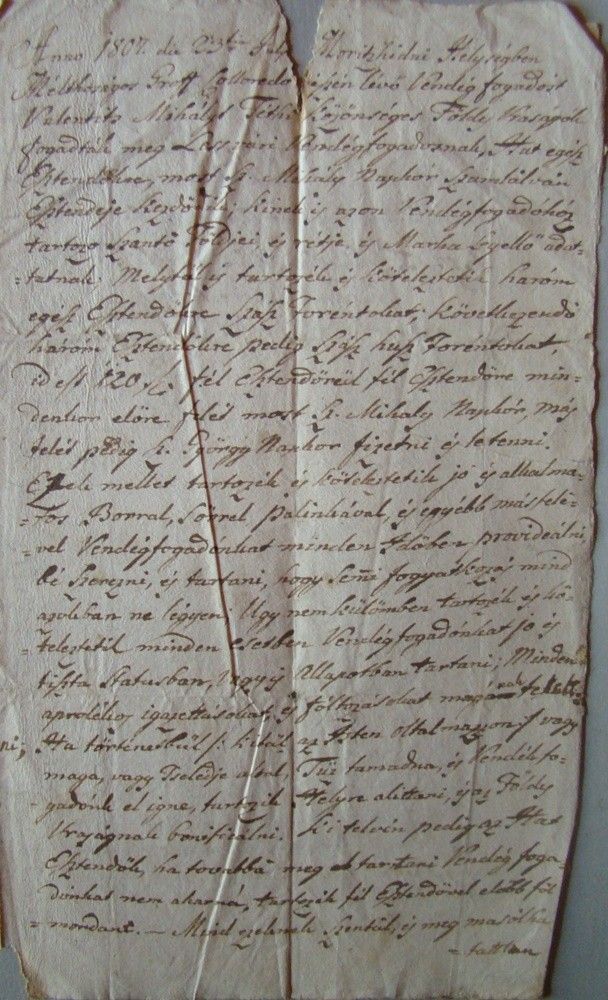 Anno 1807. die 23tia July Horitzhidni Helységben
Méltóságos Groff Colloredo részén lévő Vendég fogadóst
Valentits Mihályt Tettes Közönséges Földes Uraságok
fogadták meg Vendégfogadosnak, Hat egész
Esztendőkre, most Sz. Mihály Napkor Szamlálván
Esztendeje kezdődik, kinek is azon Vendégfogadohóz
tartozo Szantó Földjei, és rétje és Marha Legellő adat-
-tatnak. Melytől is tartozik és köteleztetik három
egész Esztendőkre Száz Forentokat; következendő
három Esztendőkre pedig Száz husz Forentokat,
id est 120 f. fél Esztendőrűl fél Esztendőre min-
denkor előre felét most Sz. Mihály Napkor, más
felét pedig Sz. György Napkor fizetni és letenni.
Ezek mellet tartozik és köteleztetik jo és alkalma-
-tos Borral, Sörrel pálinkával, és egyébb más itele-
-vel Vendégfogadónkat minden Időben provideálni,
bé Szerezni, és tartani, hogy Semi fogyatkozás mind
azokban ne légyen. Ugy nem külömben tartozik és kö-
-teleztetik minden esetben Vendégfogadónkat jo és
tiszta Statusban, vagy Allapotban tartani; Minden
aprolékos igazettásokat, és foltozásokat magának
Ha történetbűl ki az Isten oltalmazzon vagy
maga, vagy Tselédje által, Tüz tamadna, és Vendég fo-
-gadónk el égne, tartozik Helyre alittani, és az Földes
Uraságnak bonificálni. Ki telvén pedig az Hat
Esztendők, ha továbbá meg tartani Vendég foga-
dónkat nem akarná, tartozik fél Esztendővel előbb fel
-mondani. — Mind ezeknek Szentűl, és meg másolha-
-tatlan